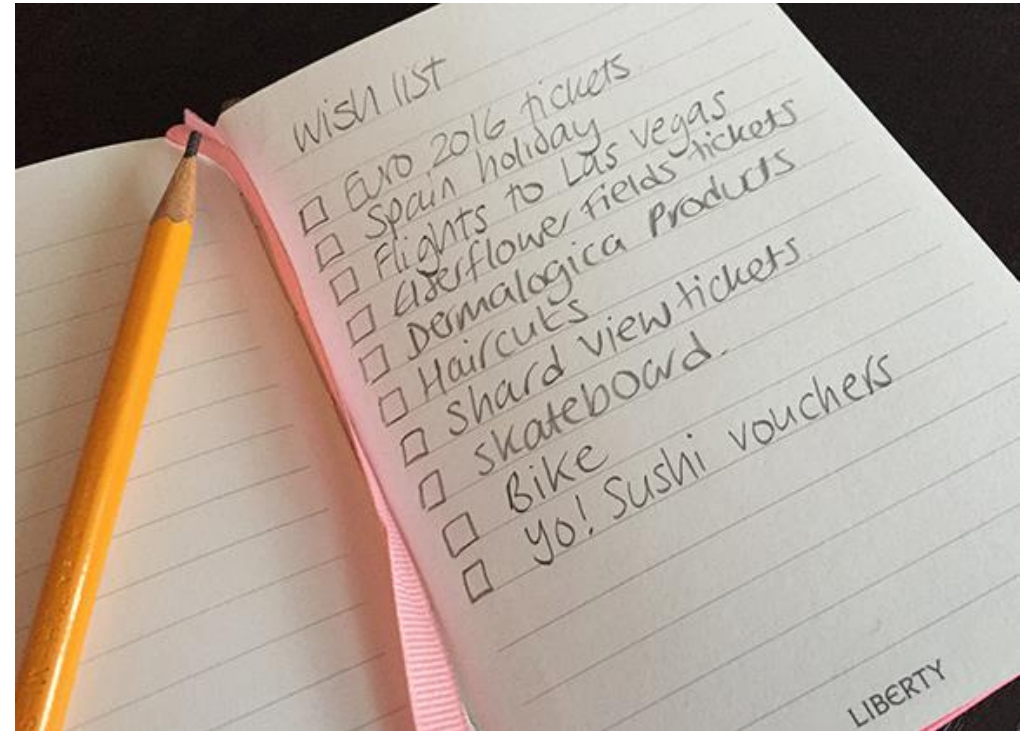 wish list
Euro 2016 tickets
Spain holiday
Flights to Las Vegas
Elderflower fields tickets
Dermalogica Products
Haircuts
Shard view tickets.
skateboard.
Bike
yo! Sushi vouchers
LIBERTY